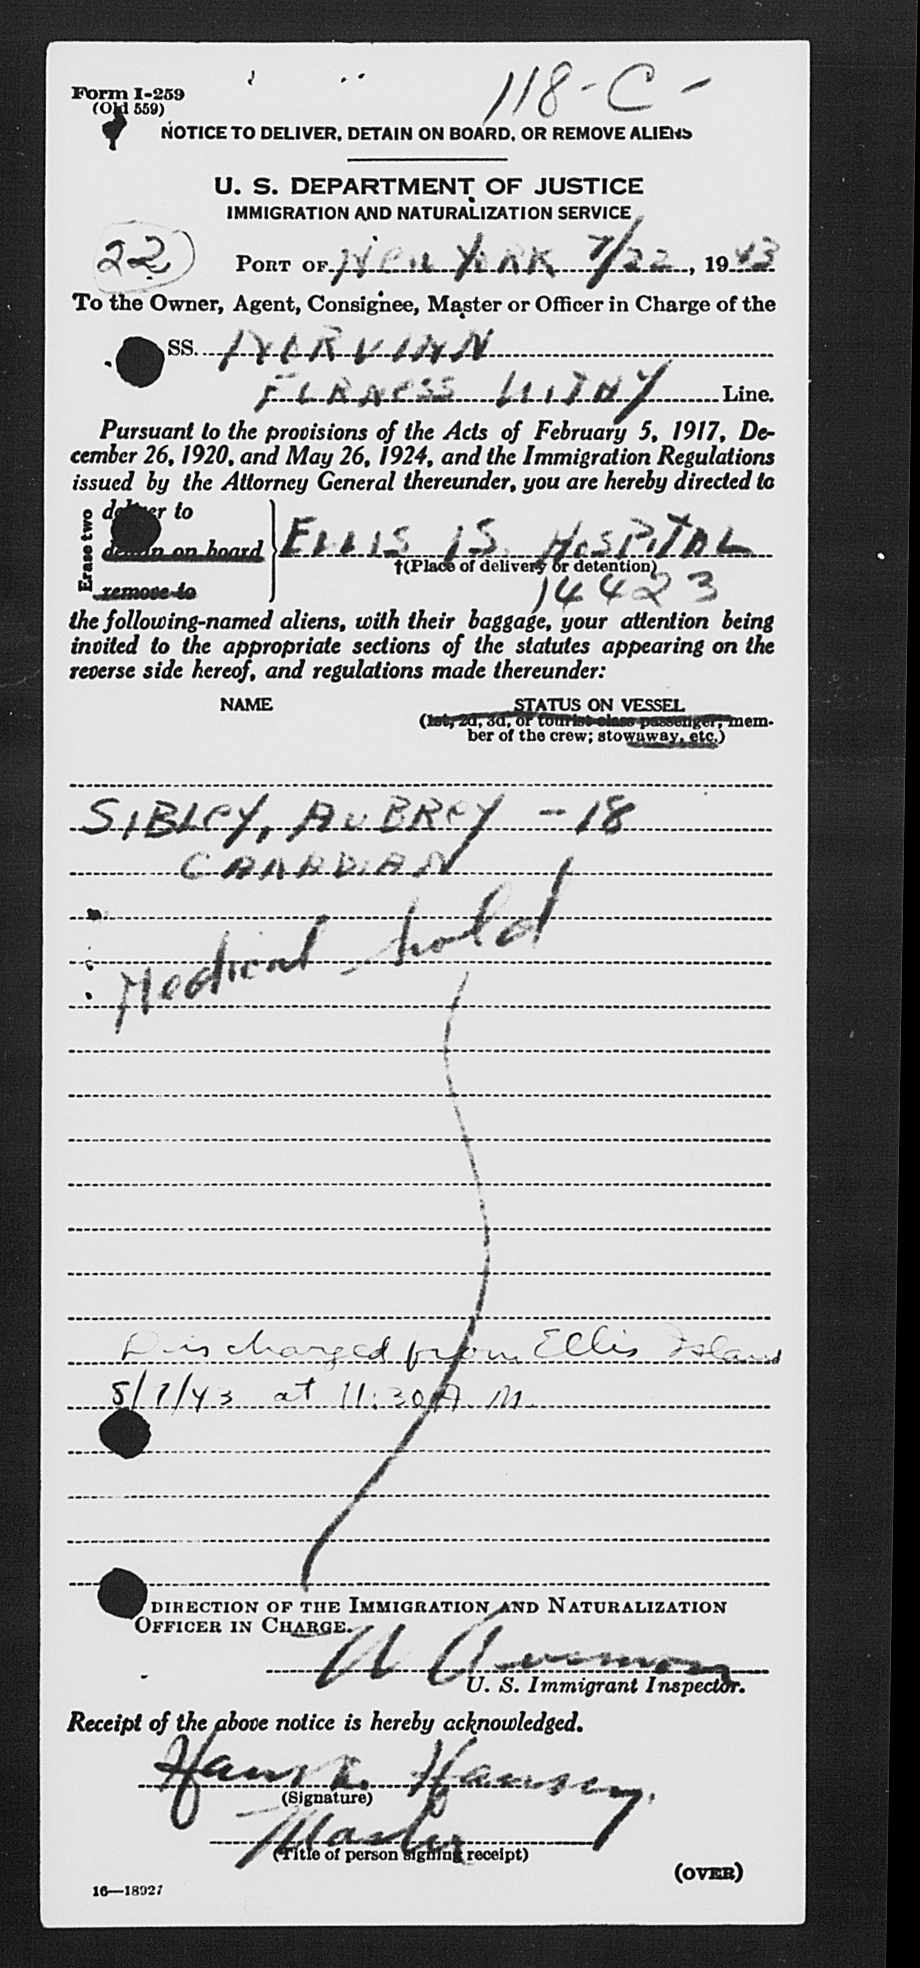 118-C-
Form I-259
(Old 559)
NOTICE TO DELIVER, DETAIN ON BOARD, OR REMOVE ALIENS
U. S. DEPARTMENT OF JUSTICE
IMMIGRATION AND NATURALIZATION SERVICE
22 PORT OF NEW YORK 7/22, 1943
To the Owner, Agent, Consignee, Master or Officer in Charge of the
SS. NORVINN
FURNESS WITHY Line.
Pursuant to the provisions of the Acts of February 5, 1917, De-
cember 26, 1920, and May 26, 1924, and the Immigration Regulations
issued by the Attorney General thereunder, you are hereby directed to
Erase two
deliver to
detain on board
remove to
ELLIS IS. HOSPITAL
†(Place of delivery or detention)
14423
the following-named aliens, with their baggage, your attention being
invited to the appropriate sections of the statutes appearing on the
reverse side hereof, and regulations made thereunder:
NAME STATUS ON VESSEL
(1st, 2d, 3d, or tourist class passenger; mem-
ber of the crew; stowaway, etc.)
SIBLEY, AUBREY - 18
CANADIAN
Medical hold
Discharged from Ellis Island
8/7/43 at 11:30 A.M.
DIRECTION OF THE IMMIGRATION AND NATURALIZATION
OFFICER IN CHARGE.
U. S. Immigrant Inspector.
Receipt of the above notice is hereby acknowledged.
Hans Hansen
(Signature)
Master
(Title of person signing receipt)
(OVER)
16—18927